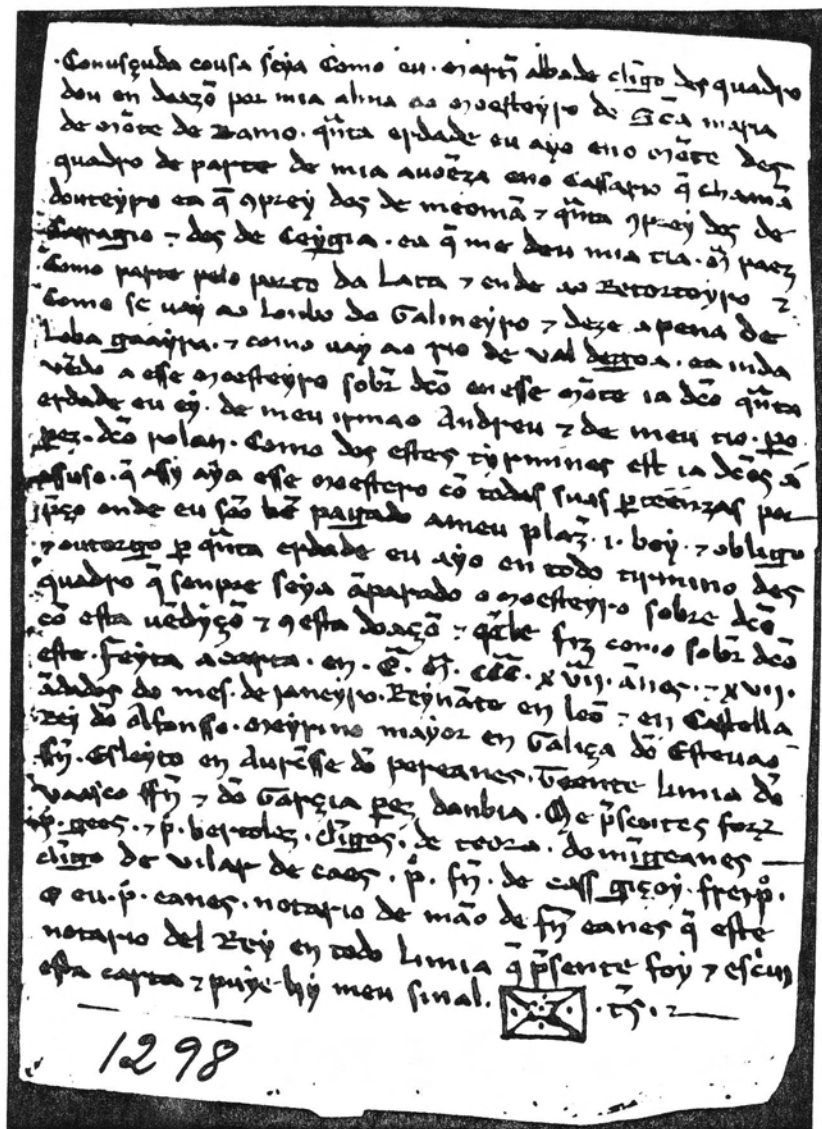 Conusçuda cousa seya como eu. Martĩ abbade clĩgo desquadro
dou en doazõ por mia alma ao moesteyro de Sc̃a maria
de mõte de Ramo. qñta erdade eu ayo eno mõte des
quadro de parte de mia auoẽza eno cassario q̃ chamã
douteyro ea q̃ ꝯprey dos de meomã ⁊ qñta ꝯprey dos de
⁊ dos de Ceygia. ea q̃ me deu mia tia. paez
como parte pelo porto da Lata ⁊ ende ao Retortoyro ⁊
como se uay ao lonbo do Galineyro ⁊ deze apena de
Loba ⁊ como uay ao rio de val. eainda
uẽdo a esse moesteyro sobr̃ dc̃o en esse mõte ia dc̃o qñta
erdade eu ey. de meu irmao Andreu ⁊ de meu tio. po
pez. dc̃o rolan. Como dos estes termines est ia dc̃os
assuso. q̃ assy aya esse moestero cõ todas suas ꝑteẽnzas por
p̃ço onde eu sõo bẽ pagado ameu plaz. i. boy. ⁊ obligo
⁊ outorgo ꝑ qñta erdade eu ayo en todo termino des
quadro q̃ senpre seya ãparado o moesteyro sobre dc̃o
cõ esta uẽdiçõ ⁊ ꝯesta doaçõ ⁊ q̃lhe fiz como sobr̃ dc̃o
este. Feyta acarta. en. E. M. CCC. XVII. ãnos. ⁊ XVII.
ãdados do mes. de janeyro. Reynãte en leõ ⁊ en Castella
Rey dõ Alfonsso. Meyrino mayor en Galiça dõ Esteuao
ffñ. Esleyto en Aurẽsse dõ pereanes. Teente limia dõ
Vaasco ffñ ⁊ dõ Garçia pez danbia. Que p̃sentes forõ
p. gees. ⁊ p. bertolez. clĩgos. de domĩgeanes
clĩgo de vilar de caes. p. fñ. de
Eeu. p. eanes. notario de mão de fñ eanes q̃ este
notario del Rey en todo limia q̃ p̃sente foy ⁊ esc̃ui
esta carta ⁊ puye hy meu sinal. . ts.
1298